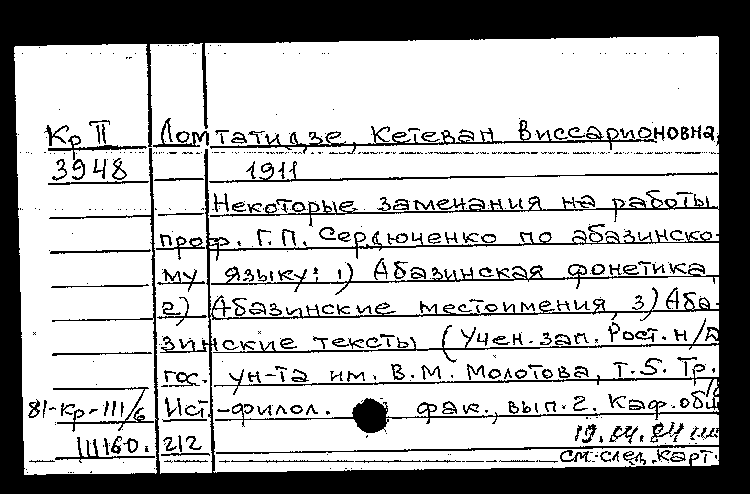 Кр II Ломтатидзе, Кетеван Виссарионовна,
3948 1911
Некоторые замечания на работы
проф. Г.П. Сердюченко по абазинско-
му языку: 1) Абазинская фонетика,
2) Абазинские местоимения, 3) Аба-
зинские тексты (Учен. зап. Рост. н/Д
гос. ун-та им. В.М. Молотова, т. 5. Тр.
81-кр-111/6 Ист.-филол. фак., вып. 2. Каф. общ
111160. 212 19.04.84
см. след. карт.